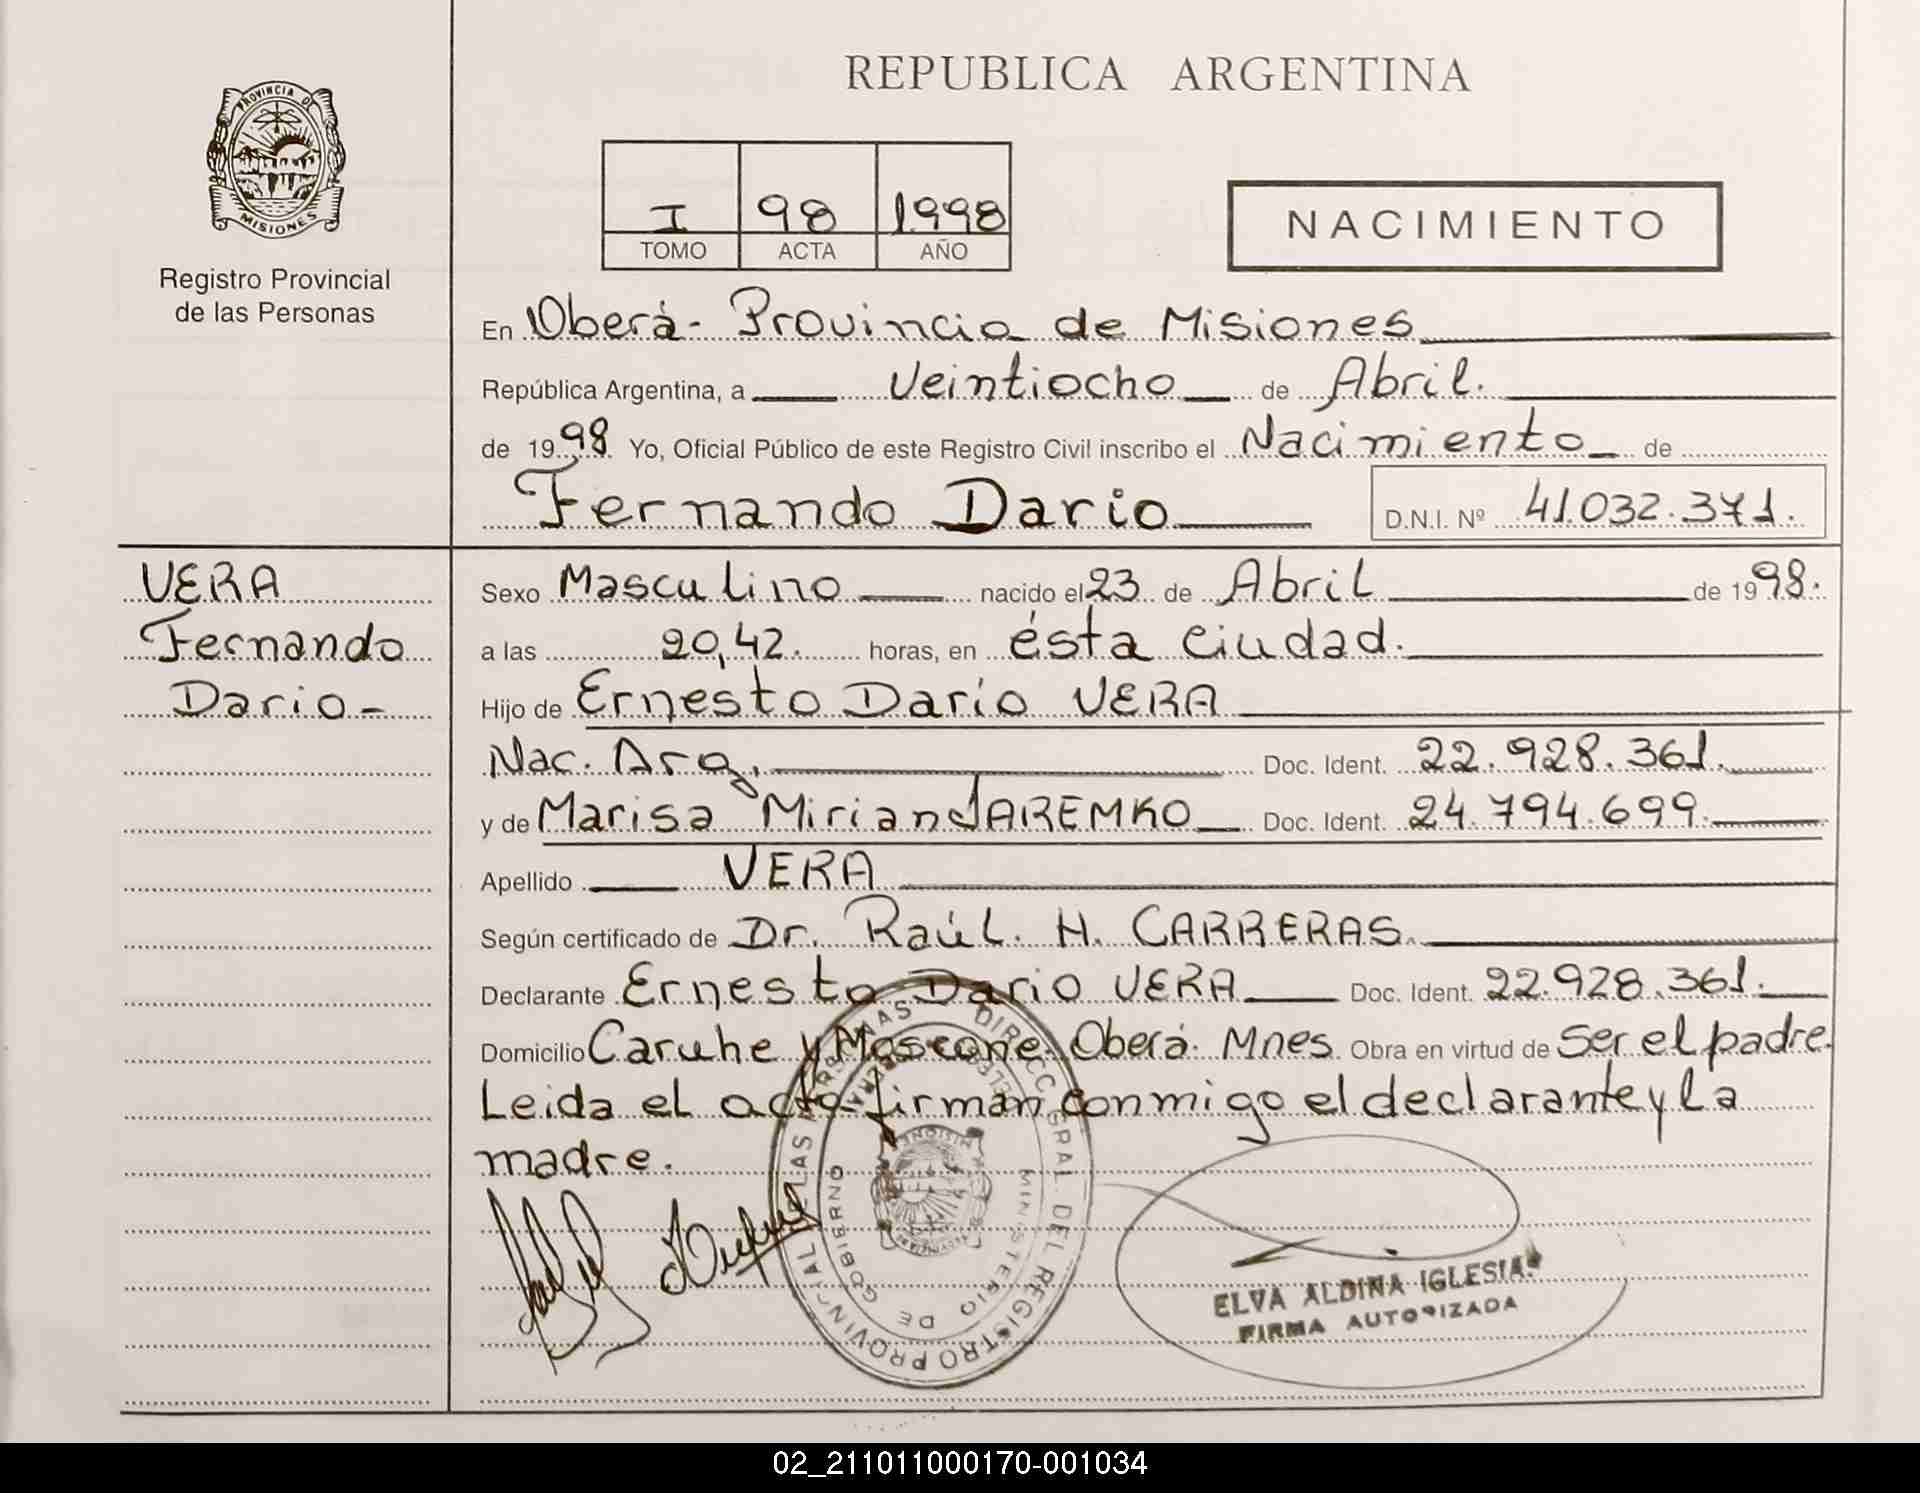 REPUBLICA ARGENTINA
PROVINCIA DE
MISIONES
Registro Provincial
de las Personas
I 98 1998
TOMO ACTA AÑO
NACIMIENTO
En Oberá - Provincia de Misiones
República Argentina, a veintiocho de Abril.
de 1998 Yo, Oficial Público de este Registro Civil inscribo el Nacimiento de
Fernando Dario D.N.I. Nº 41.032.371.
VERA
Fernando
Dario -
Sexo Masculino nacido el 23 de Abril de 1998.
a las 20,42. horas, en ésta Ciudad.
Hijo de Ernesto Darío VERA
Nac. Arg. Doc. Ident. 22.928.361.
y de Marisa Mirian JAREMKO Doc. Ident. 24.794.699.
Apellido VERA
Según certificado de Dr. Raúl. H. CARRERAS.
Declarante Ernesto Dario VERA Doc. Ident. 22.928.361.
Domicilio Caruhe y Moscone. Oberá. Mnes. Obra en virtud de Ser el padre.
Leida el acta firman conmigo el declarante y la
madre.
DIRECC. GRAL. DEL REGISTRO PROVINCIAL LAS PERSONAS
MINISTERIO DE GOBIERNO
ELVA ALDINA IGLESIAS
FIRMA AUTORIZADA
02_211011000170-001034